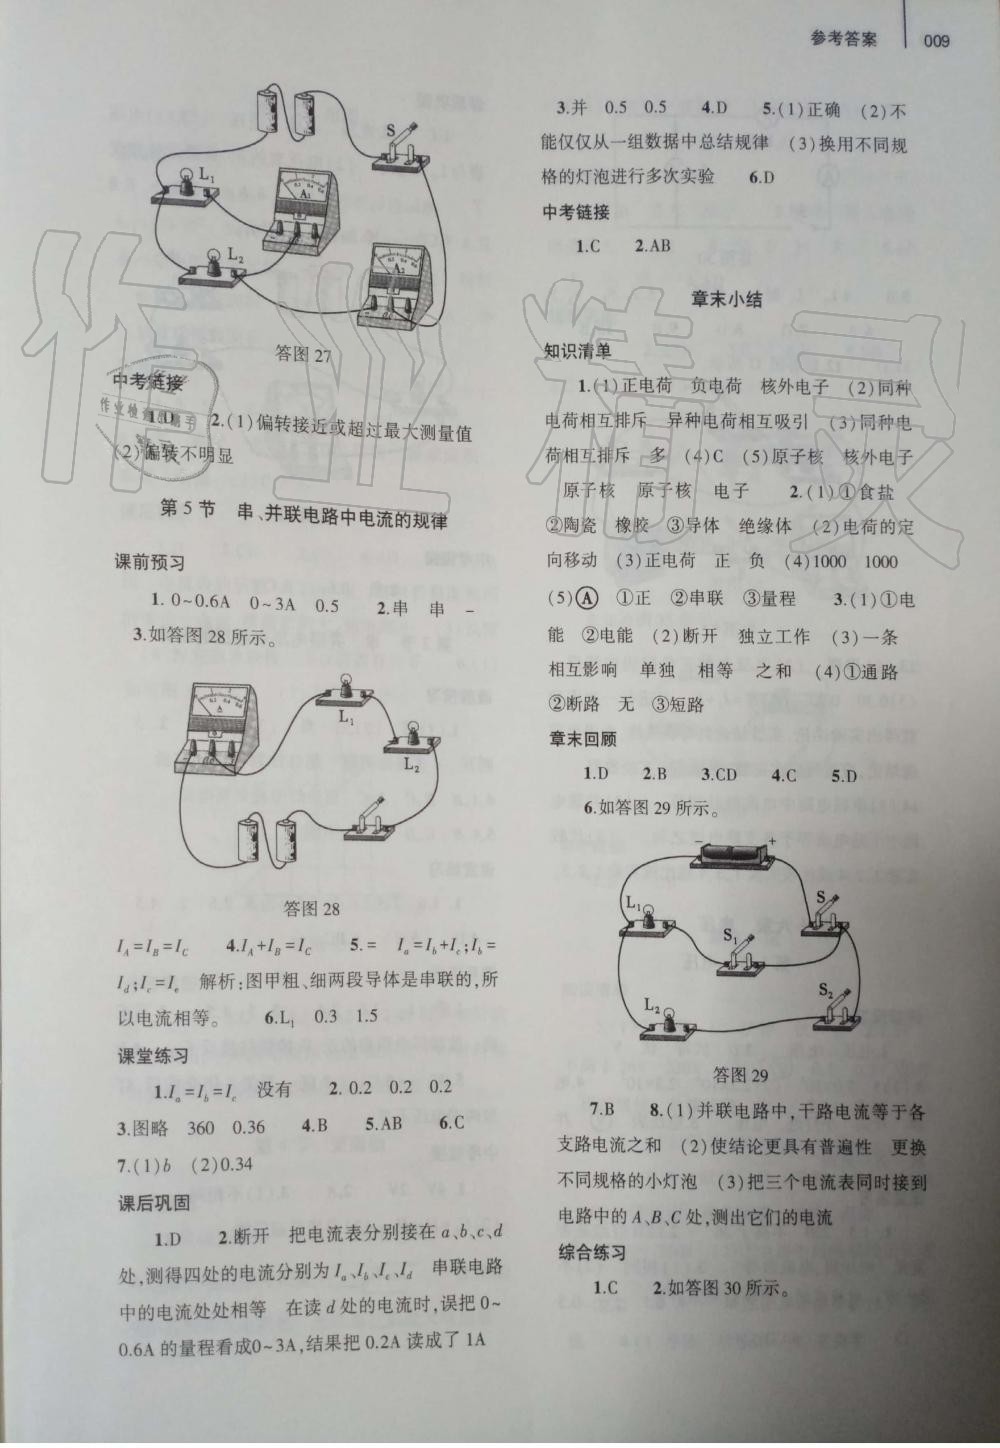 参考答案 009
S
L₁
A₁
L₂
A₂
答图 27
中考链接
1.D 2.(1)偏转接近或超过最大测量值
(2)偏转不明显
第 5 节 串、并联电路中电流的规律
课前预习
1. 0~0.6A 0~3A 0.5 2.串 串 -
3.如答图 28 所示。
L₁
L₂
答图 28
I_A=I_B=I_C 4.I_A+I_B=I_C 5.= I_a=I_b+I_c;I_b=
I_d;I_c=I_e 解析:图甲粗、细两段导体是串联的,所
以电流相等。 6.L₁ 0.3 1.5
课堂练习
1.I_a=I_b=I_c 没有 2. 0.2 0.2 0.2
3.图略 360 0.36 4.B 5.AB 6.C
7.(1)b (2)0.34
课后巩固
1.D 2.断开 把电流表分别接在 a、b、c、d
处,测得四处的电流分别为 I_a、I_b、I_c、I_d 串联电路
中的电流处处相等 在读 d 处的电流时,误把 0~
0.6A 的量程看成0~3A,结果把 0.2A 读成了 1A
3.并 0.5 0.5 4.D 5.(1)正确 (2)不
能仅仅从一组数据中总结规律 (3)换用不同规
格的灯泡进行多次实验 6.D
中考链接
1.C 2.AB
章末小结
知识清单
1.(1)正电荷 负电荷 核外电子 (2)同种
电荷相互排斥 异种电荷相互吸引 (3)同种电
荷相互排斥 多 (4)C (5)原子核 核外电子
原子核 原子核 电子 2.(1)①食盐
②陶瓷 橡胶 ③导体 绝缘体 (2)电荷的定
向移动 (3)正电荷 正 负 (4)1000 1000
(5)Ⓐ ①正 ②串联 ③量程 3.(1)①电
能 ②电能 (2)断开 独立工作 (3)一条
相互影响 单独 相等 之和 (4)①通路
②断路 无 ③短路
章末回顾
1.D 2.B 3.CD 4.C 5.D
6.如答图 29 所示。
- +
L₁
S
S₁
L₂
S₂
答图 29
7.B 8.(1)并联电路中,干路电流等于各
支路电流之和 (2)使结论更具有普遍性 更换
不同规格的小灯泡 (3)把三个电流表同时接到
电路中的 A、B、C 处,测出它们的电流
综合练习
1.C 2.如答图 30 所示。
作业精灵